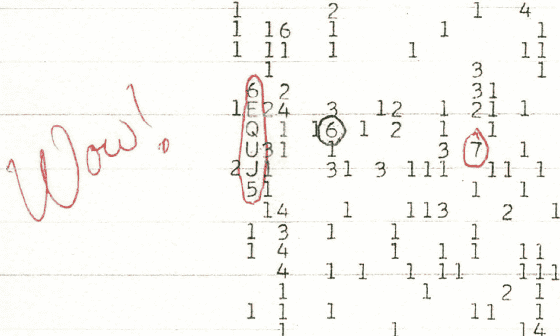 1 2 1 4
1 16 1 1 1
1 11 1 1 11
1 3 1
6 2 31
1 E 24 3 12 1 21 1
Q 1 16 1 2 1 1
Wow! U 31 1 3 7 1
2 J 1 31 3 111 11 1
5 1 1 1
14 1 113 2 1
1 3 1 1 1
1 4 1 1 1 11
4 1 1 1 11 111
1 1 2 1
1 1 1 11 1
1 1 14